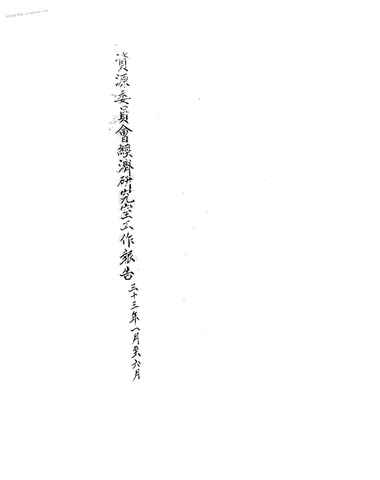 資源委員會經濟研究室工作報告
三十三年一月至六月